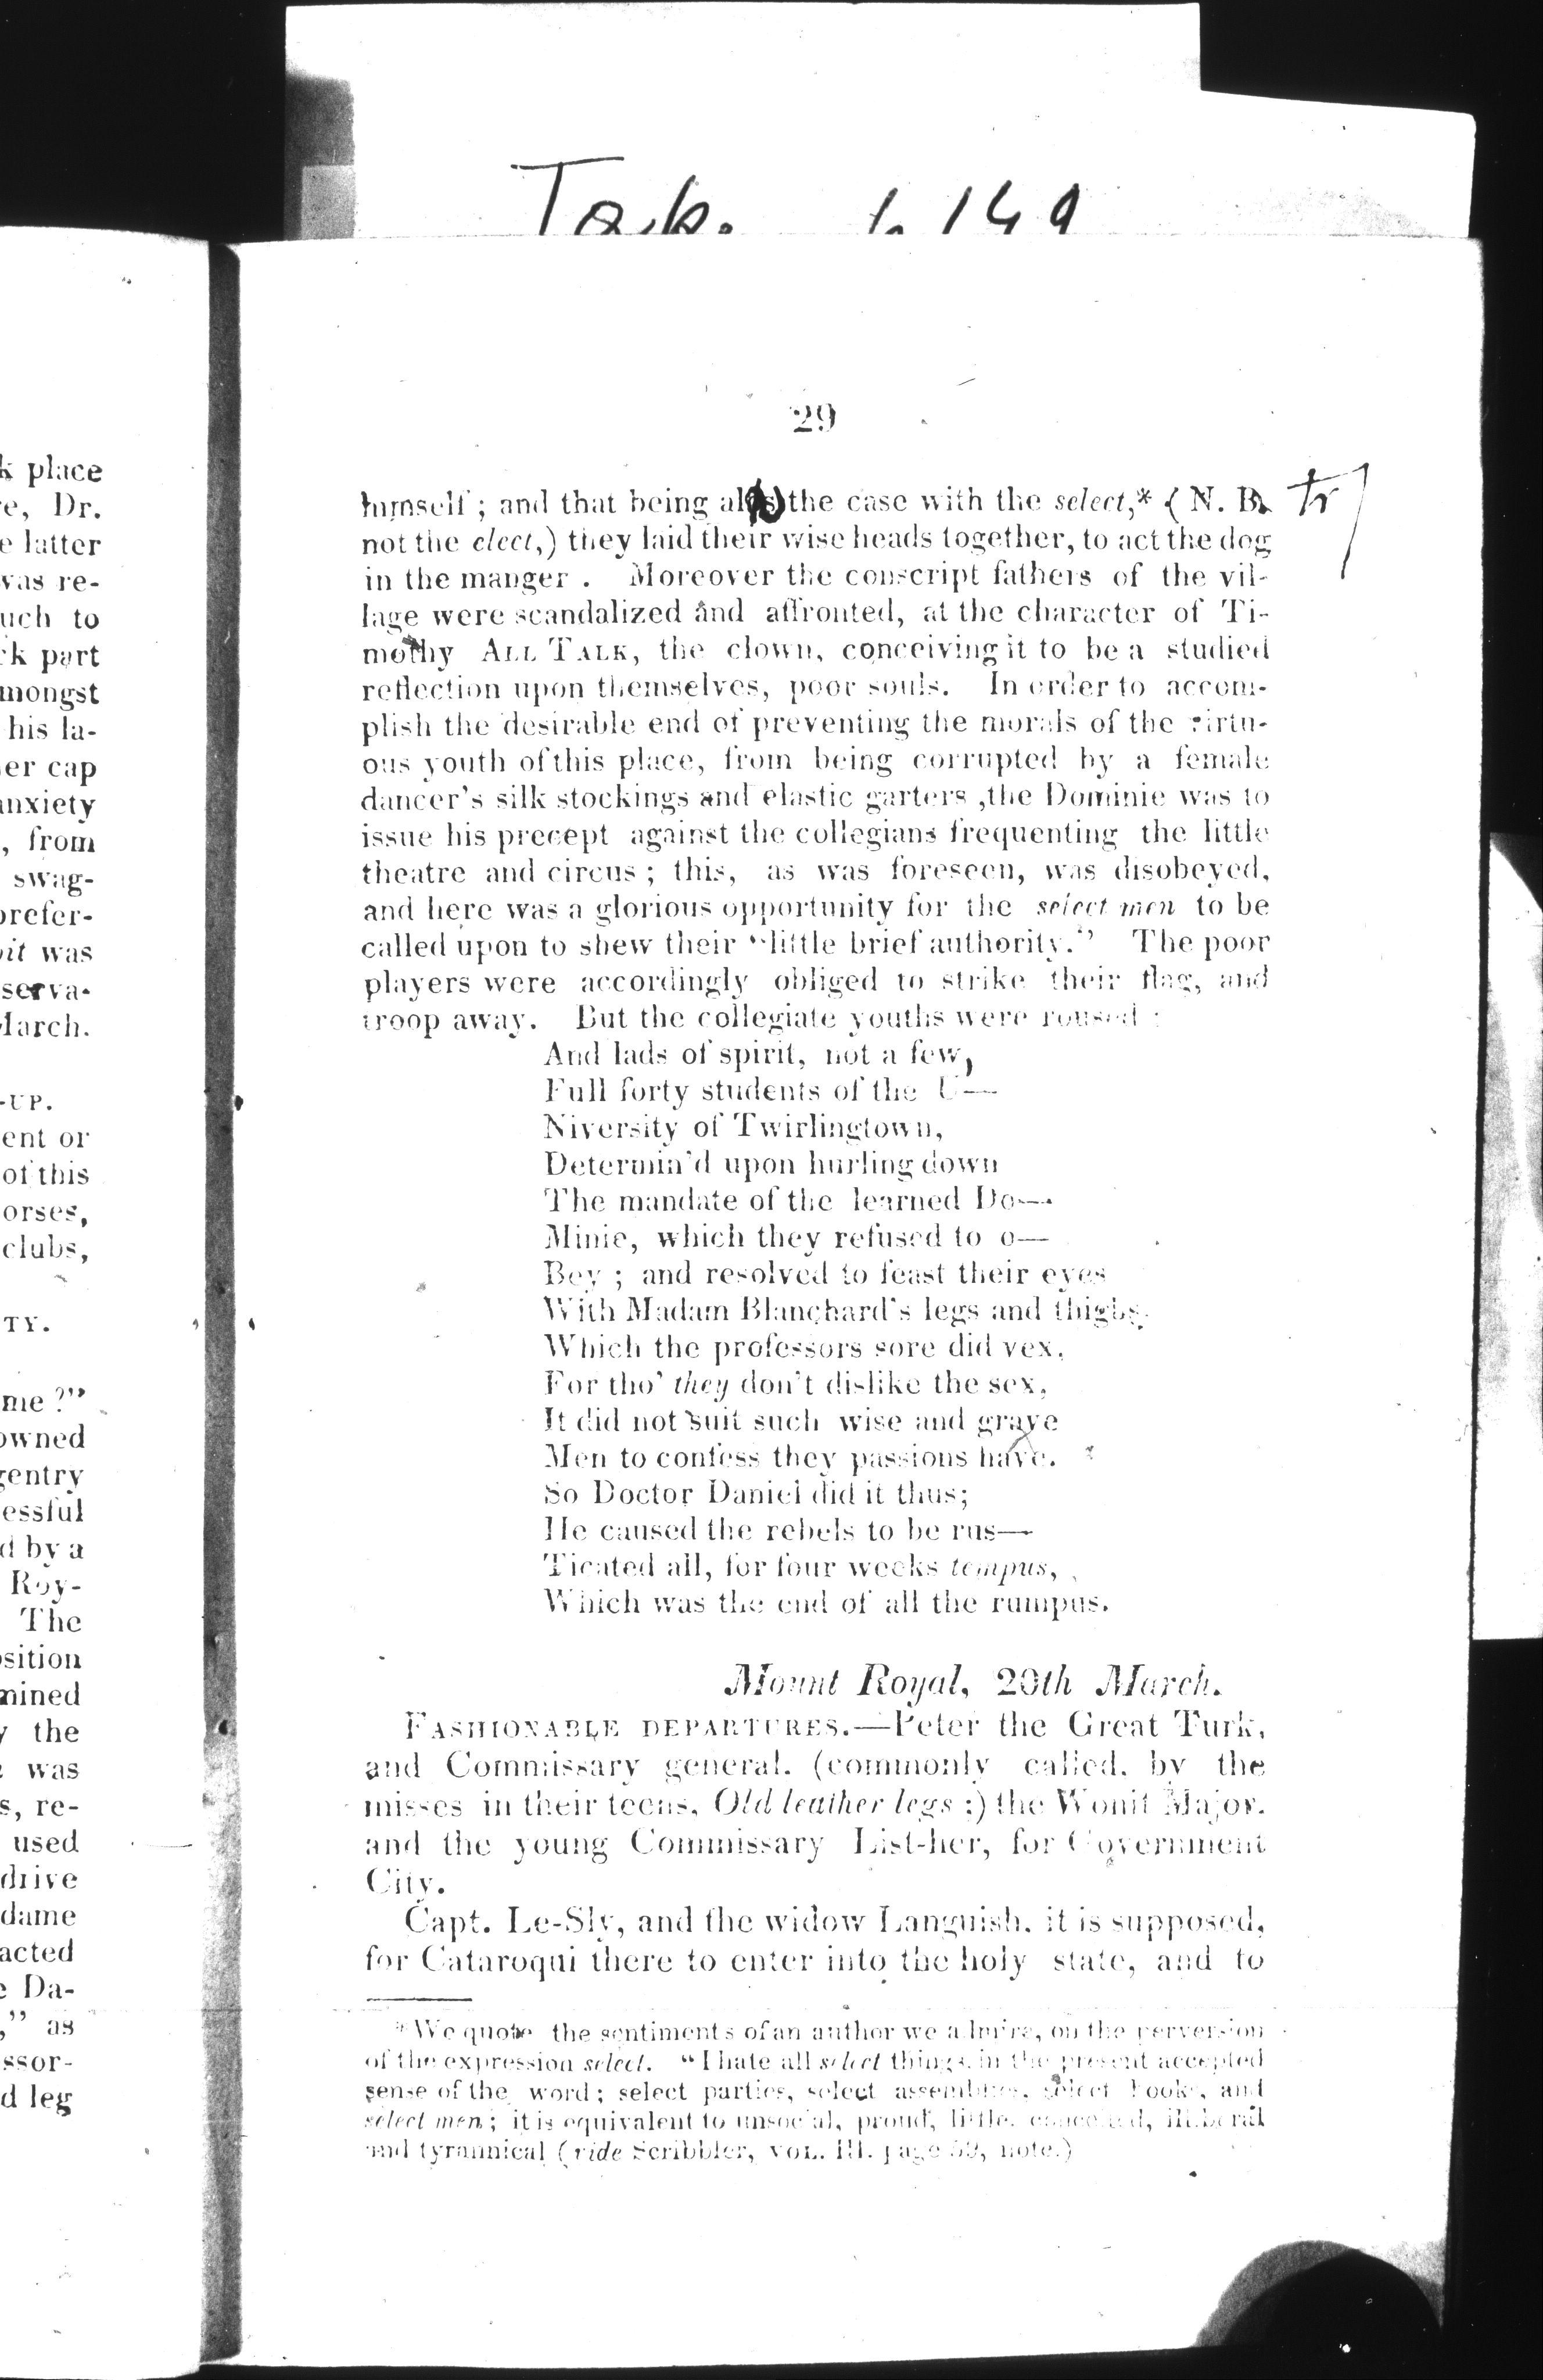 k place
e, Dr.
e latter
was re-
uch to
rk part
mongst
his la-
er cap
anxiety
, from
swag-
prefer-
it was
serva-
March.
-UP.
ent or
of this
orses,
clubs,
TY.
me ?"
owned
gentry
essful
d by a
Roy-
The
sition
mined
y the
was
s, re-
used
drive
dame
acted
e Da-
," as
ssor-
d leg
149
29
himself ; and that being the case with the select,* ( N. B. tr
not the elect,) they laid their wise heads together, to act the dog
in the manger . Moreover the conscript fathers of the vil-
lage were scandalized and affronted, at the character of Ti-
mothy ALL TALK, the clown, conceiving it to be a studied
reflection upon themselves, poor souls. In order to accom-
plish the desirable end of preventing the morals of the virtu-
ous youth of this place, from being corrupted by a female
dancer's silk stockings and elastic garters ,the Dominie was to
issue his precept against the collegians frequenting the little
theatre and circus ; this, as was foreseen, was disobeyed,
and here was a glorious opportunity for the select men to be
called upon to shew their "little brief authority." The poor
players were accordingly obliged to strike their flag, and
troop away. But the collegiate youths were roused :
And lads of spirit, not a few,
Full forty students of the U—
Niversity of Twirlingtown,
Determin'd upon hurling down
The mandate of the learned Do—
Minie, which they refused to o—
Bey ; and resolved to feast their eyes
With Madam Blanchard's legs and thighs.
Which the professors sore did vex,
For tho' they don't dislike the sex,
It did not suit such wise and grave
Men to confess they passions have.
So Doctor Daniel did it thus;
He caused the rebels to be rus—
Ticated all, for four weeks tempus,
Which was the end of all the rumpus.
Mount Royal, 20th March.
FASHIONABLE DEPARTURES.—Peter the Great Turk,
and Commissary general, (commonly called, by the
misses in their teens, Old leather legs ;) the Wonit Major,
and the young Commissary List-her, for Government
City.
Capt. Le-Sly, and the widow Languish, it is supposed,
for Cataroqui there to enter into the holy state, and to
*We quote the sentiments of an author we admire, on the perversion
of the expression select. "I hate all select things, in the present accepted
sense of the word ; select parties, select assemblies, select books, and
select men ; it is equivalent to unsocial, proud, little, conceited, illiberal
and tyrannical (vide Scribbler, VOL. III. page 59, note.)